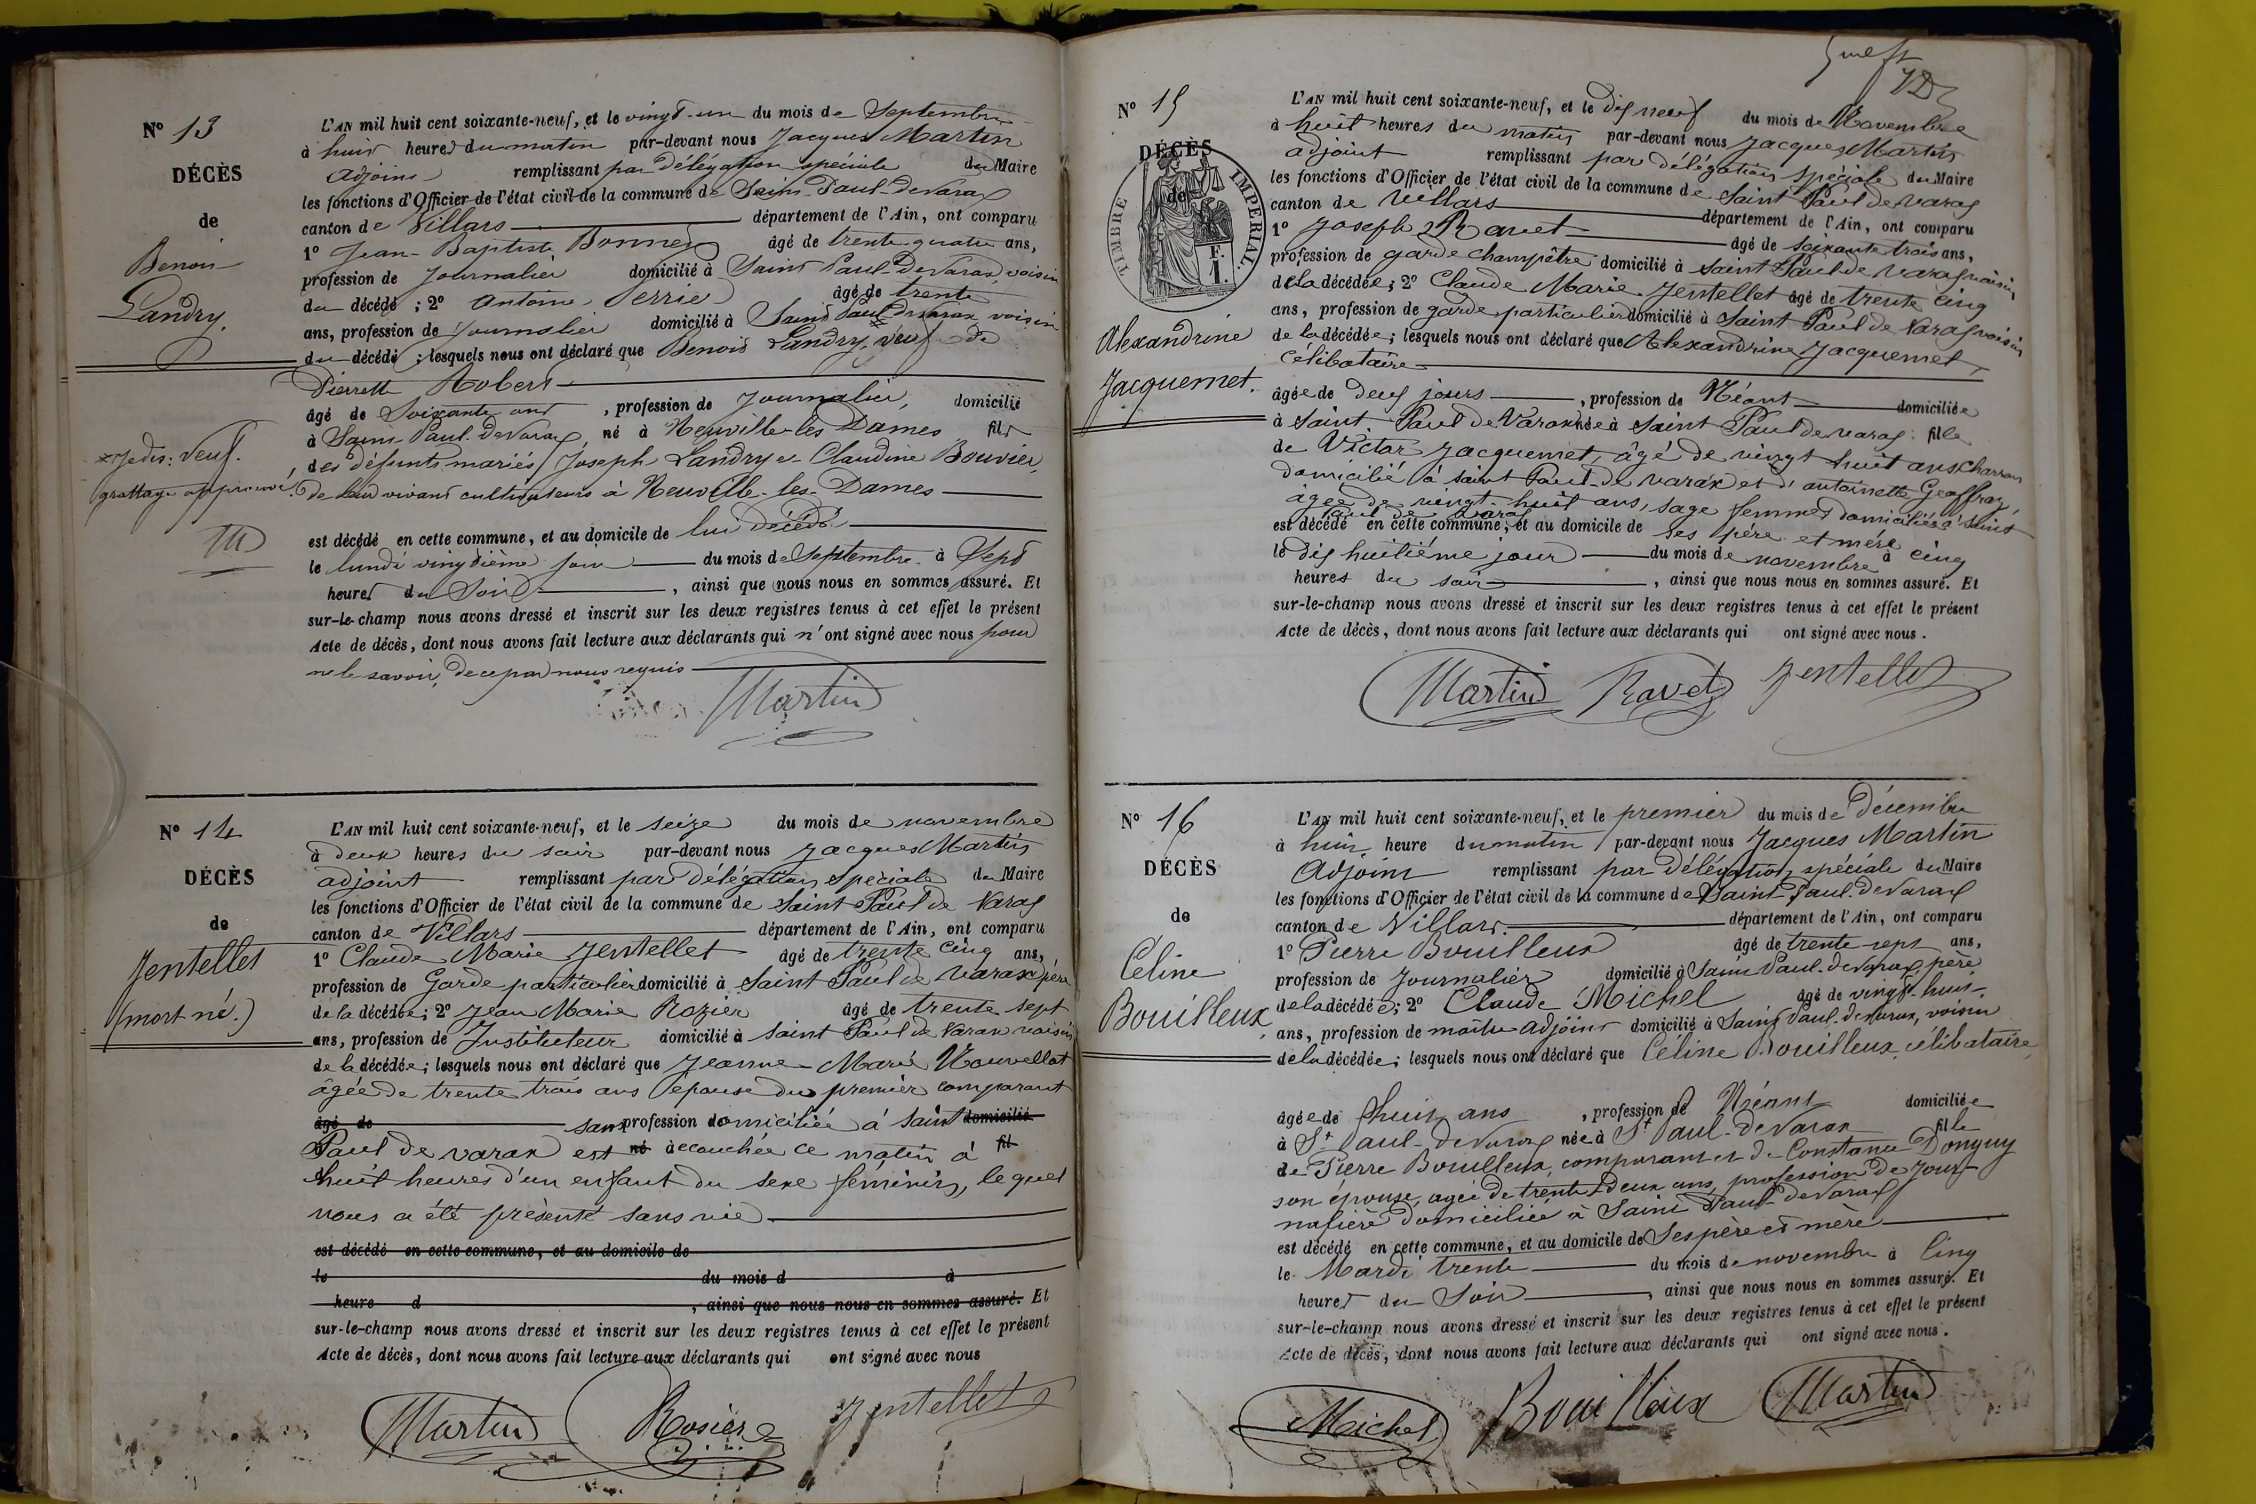 N° 13
DÉCÈS
de
Benoit
Landry.
× je dis: veuf.
grattage approuvé.
L'AN mil huit cent soixante-neuf, et le vingt-un du mois de Septembre
à huit heures du matin par-devant nous Jacques Martin
Adjoint remplissant par délégation spéciale du Maire
les fonctions d'Officier de l'état civil de la commune de Saint-Paul-de Varax
canton de Villars département de l'Ain, ont comparu
1° Jean-Baptiste Bonnet âgé de trente quatre ans,
profession de Journalier domicilié à Saint Paul-de Varax, voisin
du décédé ; 2° Antoine Perrier âgé de trente
ans, profession de Journalier domicilié à Saint Paul de Varax voisin
du décédé ; lesquels nous ont déclaré que Benoit Landry, veuf de
Pierrette Robert
âgé de Soixante ans , profession de Journalier, domicilié
à Saint-Paul-de Varax, né à Neuville-les Dames fils
des défunts mariés Joseph Landry et Claudine Bouvier,
de leur vivant cultivateurs à Neuville-les-Dames
est décédé en cette commune, et au domicile de lui décédé
le lundi vingtième jour du mois de Septembre à Sept
heures du Soir , ainsi que nous nous en sommes assuré. Et
sur-le-champ nous avons dressé et inscrit sur les deux registres tenus à cet effet le présent
Acte de décès, dont nous avons fait lecture aux déclarants qui n'ont signé avec nous pour
ne le savoir, de ce par nous requis
Martin
N° 14
DÉCÈS
de
Jentellet
(mort né.)
L'AN mil huit cent soixante-neuf, et le seize du mois de novembre
à deux heures du soir par-devant nous Jacques Martin
adjoint remplissant par délégation spéciale du Maire
les fonctions d'Officier de l'état civil de la commune de Saint Paul de Varax
canton de Villars département de l'Ain, ont comparu
1° Claude Marie Jentellet âgé de trente cinq ans,
profession de Garde particulier domicilié à Saint Paul de Varax père
de la décédée; 2° Jean Marie Rozier âgé de trente sept
ans, profession de Instituteur domicilié à saint Paul de Varax voisin
de la décédée; lesquels nous ont déclaré que Jeanne-Marie Nouvellet
âgée de trente trois ans épouse du premier comparant
âgé de sans profession domiciliée à saint domicilié
Paul de varax est né accouchée ce matin à fil
huit heures d'un enfant du sexe féminin, lequel
nous a été présenté sans vie
est décédé en cette commune, et au domicile de
le du mois d à
heure d , ainsi que nous nous en sommes assuré. Et
sur-le-champ nous avons dressé et inscrit sur les deux registres tenus à cet effet le présent
Acte de décès, dont nous avons fait lecture aux déclarants qui ont signé avec nous
Martin Rosier Jentellet
N° 15
DÉCÈS
de
TIMBRE IMPERIAL.
F.
1.
Alexandrine
Jacquemet.
L'AN mil huit cent soixante-neuf, et le dix neuf du mois de Novembre
à huit heures du matin par-devant nous Jacques Martin
adjoint remplissant par délégation spéciale du Maire
les fonctions d'Officier de l'état civil de la commune de Saint Paul de varax
canton de Villars département de l'Ain, ont comparu
1° Joseph Ravet âgé de soixante trois ans,
profession de garde champêtre domicilié à saint Paul de varax voisin
de la décédée; 2° Claude Marie Jentellet âgé de trente cinq
ans, profession de garde particulier domicilié à Saint Paul de Varax voisin
de la décédée; lesquels nous ont déclaré que Alexandrine Jacquemet,
célibataire
âgée de deux jours , profession de Néant domiciliée
à Saint Paul de Varax née à Saint Paul de varax fille
de Victor Jacquemet, âgé de vingt huit ans charron
domicilié à saint Paul de varax et d'antoinette Geoffray,
âgée de vingt-huit ans, sage femme domiciliée à Saint
Paul de Varax
est décédé en cette commune, et au domicile de ses père et mère
le dix huitième jour du mois de novembre à cinq
heures du soir , ainsi que nous nous en sommes assuré. Et
sur-le-champ nous avons dressé et inscrit sur les deux registres tenus à cet effet le présent
Acte de décès, dont nous avons fait lecture aux déclarants qui ont signé avec nous.
Martin Ravet Jentellet
N° 16
DÉCÈS
de
Céline
Bouilleux
L'AN mil huit cent soixante-neuf, et le premier du mois de Décembre
à huit heure du matin par-devant nous Jacques Martin
Adjoint remplissant par délégation spéciale du Maire
les fonctions d'Officier de l'état civil de la commune de Saint-Paul-de Varax
canton de Villars département de l'Ain, ont comparu
1° Pierre Bouilleux âgé de trente-sept ans,
profession de Journalier domicilié à Saint Paul-de Varax, père
de la décédée; 2° Claude Michel âgé de vingt-huit
ans, profession de maître-adjoint domicilié à Saint Paul-de Varax, voisin
de la décédée; lesquels nous ont déclaré que Céline Bouilleux, célibataire,
âgée de huit ans , profession de Néant domiciliée
à St Paul-de Varax née à St Paul-de Varax fille
de Pierre Bouilleux, comparant et de Constance Donguy
son épouse, âgée de trente-deux ans, profession de Jour-
nalière domiciliée à Saint Paul-de Varax
est décédé en cette commune, et au domicile de Ses père et mère
le Mardi trente du mois de novembre à Cinq
heures du Soir , ainsi que nous nous en sommes assuré. Et
sur-le-champ nous avons dressé et inscrit sur les deux registres tenus à cet effet le présent
Acte de décès, dont nous avons fait lecture aux déclarants qui ont signé avec nous.
Michel Bouilleux Martin